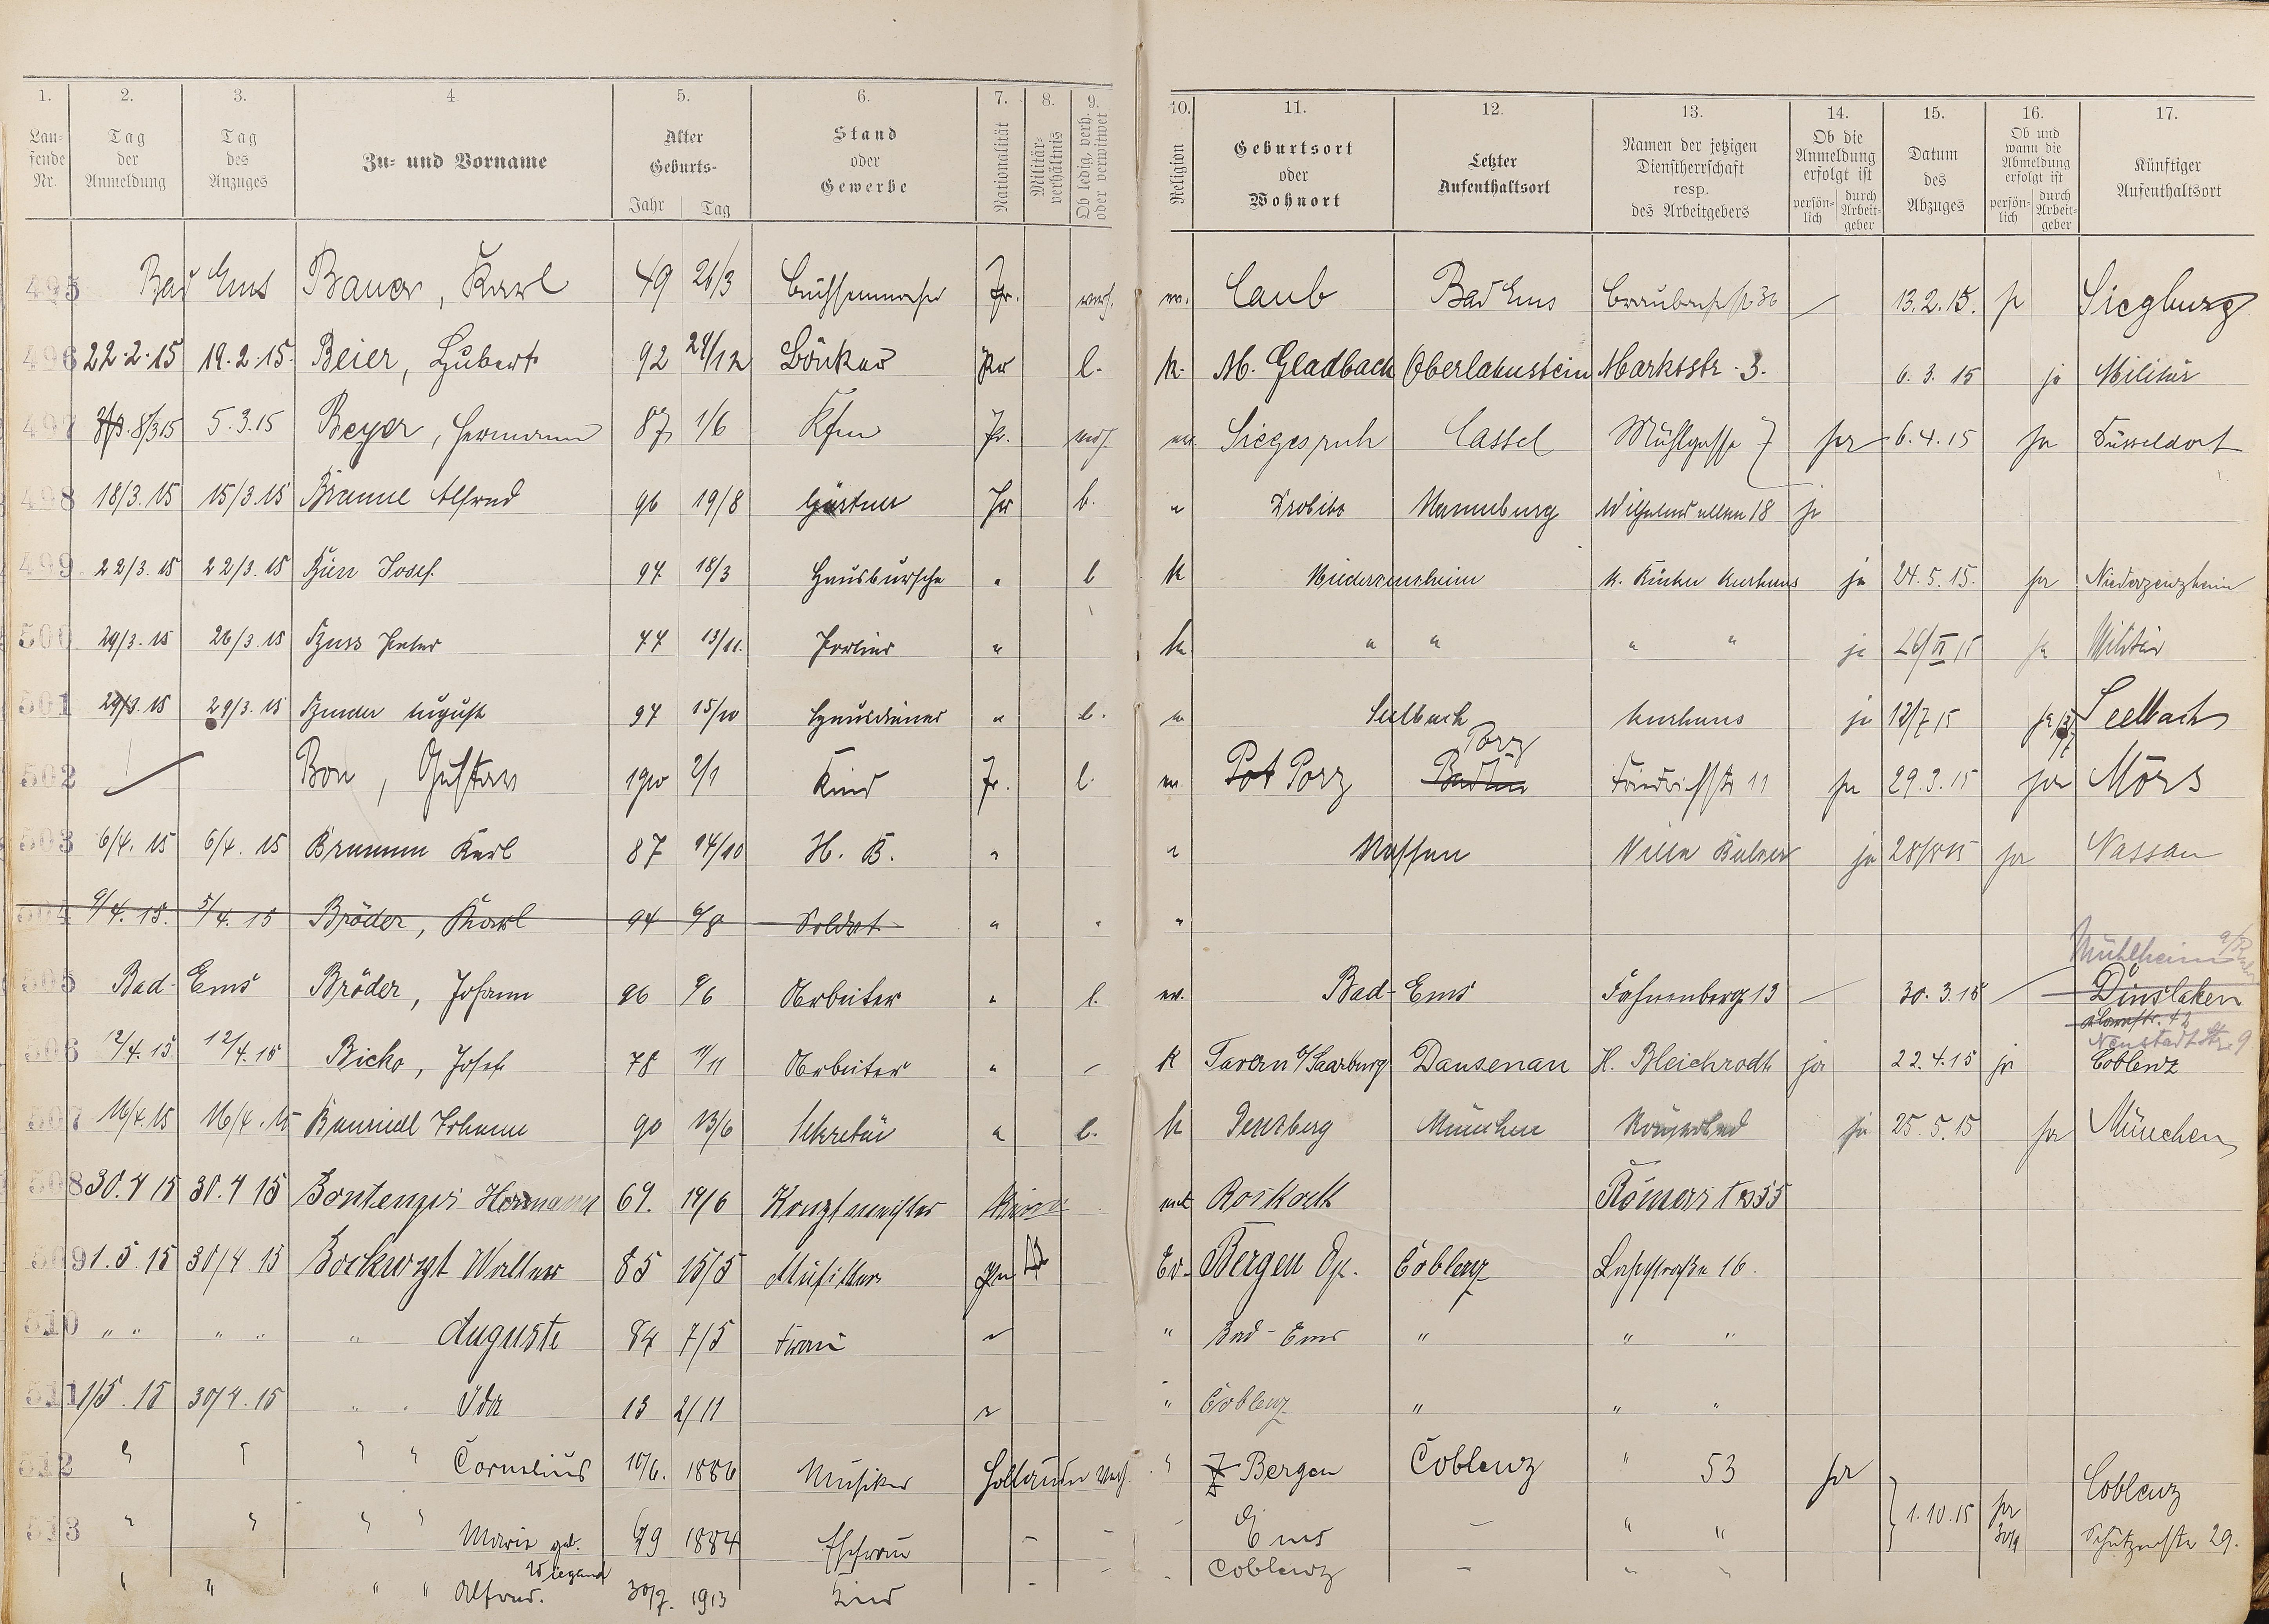 1. 2. 3. 4. 5. 6. 7. 8. 9. 10. 11. 12. 13. 14. 15. 16. 17.
Lau-fende Nr. Tag der Anmeldung Tag des Anzuges Zu- und Vorname Alter Geburts- Jahr Tag Stand oder Gewerbe Nationalität Militär-verhältnis Ob ledig, verh. oder verwitwet Religion Geburtsort oder Wohnort Letzter Aufenthaltsort Namen der jetzigen Dienstherrschaft resp. des Arbeitgebers Ob die Anmeldung erfolgt ist persön-lich durch Arbeit-geber Datum des Abzuges Ob und wann die Abmeldung erfolgt ist persön-lich durch Arbeit-geber Künftiger Aufenthaltsort
495 Bad Ems Bauer, Karl 49 26/3 Büchsenmacher Pr. verh. ev. Caub Bad Ems 13.2.15. ja Siegburg
496 22.2.15 19.2.15. Beier, Hubert 92 24/12 Pr l. k. M. Gladbach Oberlahnstein Marktstr. 3. 6.3.15 ja Militär
497 8/3 15 5.3.15 Beyer, Hermann 87 1/6 Kfm Pr. verh. ev. Cassel Mühlgasse 7 ja 6.4.15 ja Düsseldorf
498 18/3. 15 15/3. 15 Alfred 96 19/8 Gärtner Pr l. " Naumburg Wilhelmsallee 18 ja
499 22/3. 15 22/3. 15 Josef 97 18/3 Hausbursche " l k Niederzeuzheim Kurhaus ja 24.5.15. ja Niederzeuzheim
500 29/3. 15 26/3. 15 Peter 77 13/11. Portier " k " " " " ja 26/VI 15 ja Militär
501 29/3. 15 29/3. 15 August 97 15/10 Hausdiener " l. " Seelbach Kurhaus ja 12/7 15 ja Seelbach
502 Bon, Gustav 1910 2/1 Kind Pr. l. ev. Pot Porz Porz Friedrichstr 11 ja 29.3.15 ja Mörs
503 6/4. 15 6/4. 15 Brumm Karl 87 14/10 H. B. " " Nassau Villa ja ja Nassau
504 9/4. 15. 5/4. 15 Bröder, Karl 94 6/8 Soldat " " "
Mühlheim a/Ruhr
505 Bad-Ems Bröder, Johann 96 9/6 Arbeiter " l. ev. Bad-Ems Fahnenberg 13 30.3.15 Dinslaken
Neustadtstr. 9
506 12/4. 15 12/4. 15 Bicko, Josef 78 11/11 Arbeiter " k Tavern b/Saarburg Dausenau H. Bleichrodt ja 22.4.15 ja Coblenz
507 16/4. 15 16/4. 15 Johann 90 13/6 Sekretär " l. k Penzberg München Römerbad ja 25.5.15 ja München
508 30.4 15 30.4 15 Hermann 69. 19/6 Konzertmeister Römerstr 55
509 1.5.15 30/4 15 Walter 85 15/5 Musiker Pr. Ev. Bergen Coblenz Lahnstraße 16.
510 " " " " " Auguste 84 7/5 Frau " " Bad-Ems " " "
511 1/5. 15 30/4. 15 " " Ida 13 2/11 " " Coblenz " " "
512 " " " " Cornelius 10/6. 1886 Musiker Holländer verh. " Bergen Coblenz " 53 ja Coblenz
513 " " " " Marie geb. Wiegand 6/9 1884 Ehefrau - - - Ems - " " 1.10.15 ja 30/9 Schützenstr 29.
" " " " Alfred. 30/7. 1913 Kind - - - Coblenz - " "